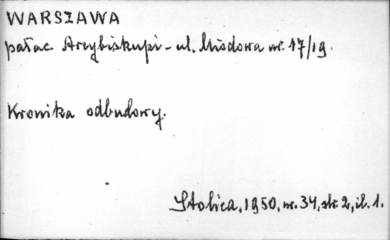 WARSZAWA
pałac Arcybiskupi - ul. Miodowa nr. 17/19.
Kronika odbudowy.
Stolica, 1950, nr. 34, str. 2, il. 1.